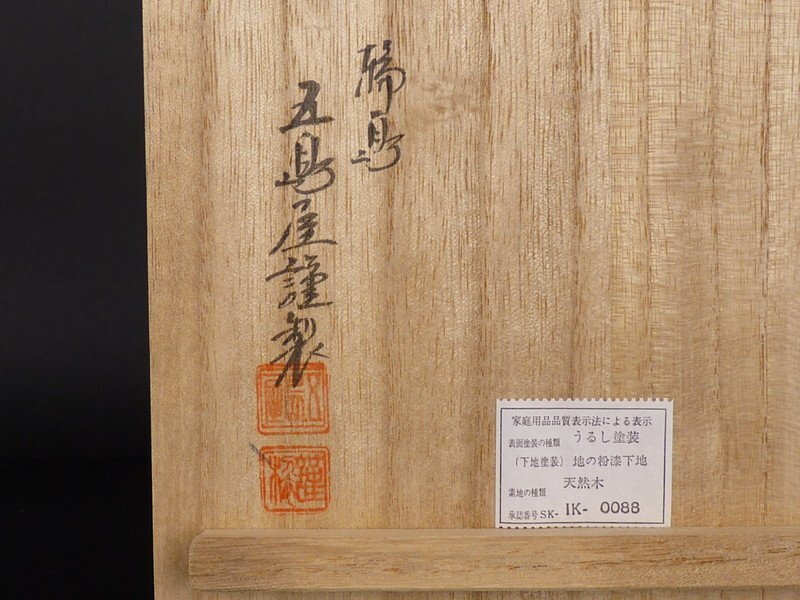 輪島
五島屋謹製
家庭用品品質表示法による表示
表面塗装の種類 うるし塗装
(下地塗装) 地の粉漆下地
素地の種類 天然木
承認番号 SK- IK- 0088